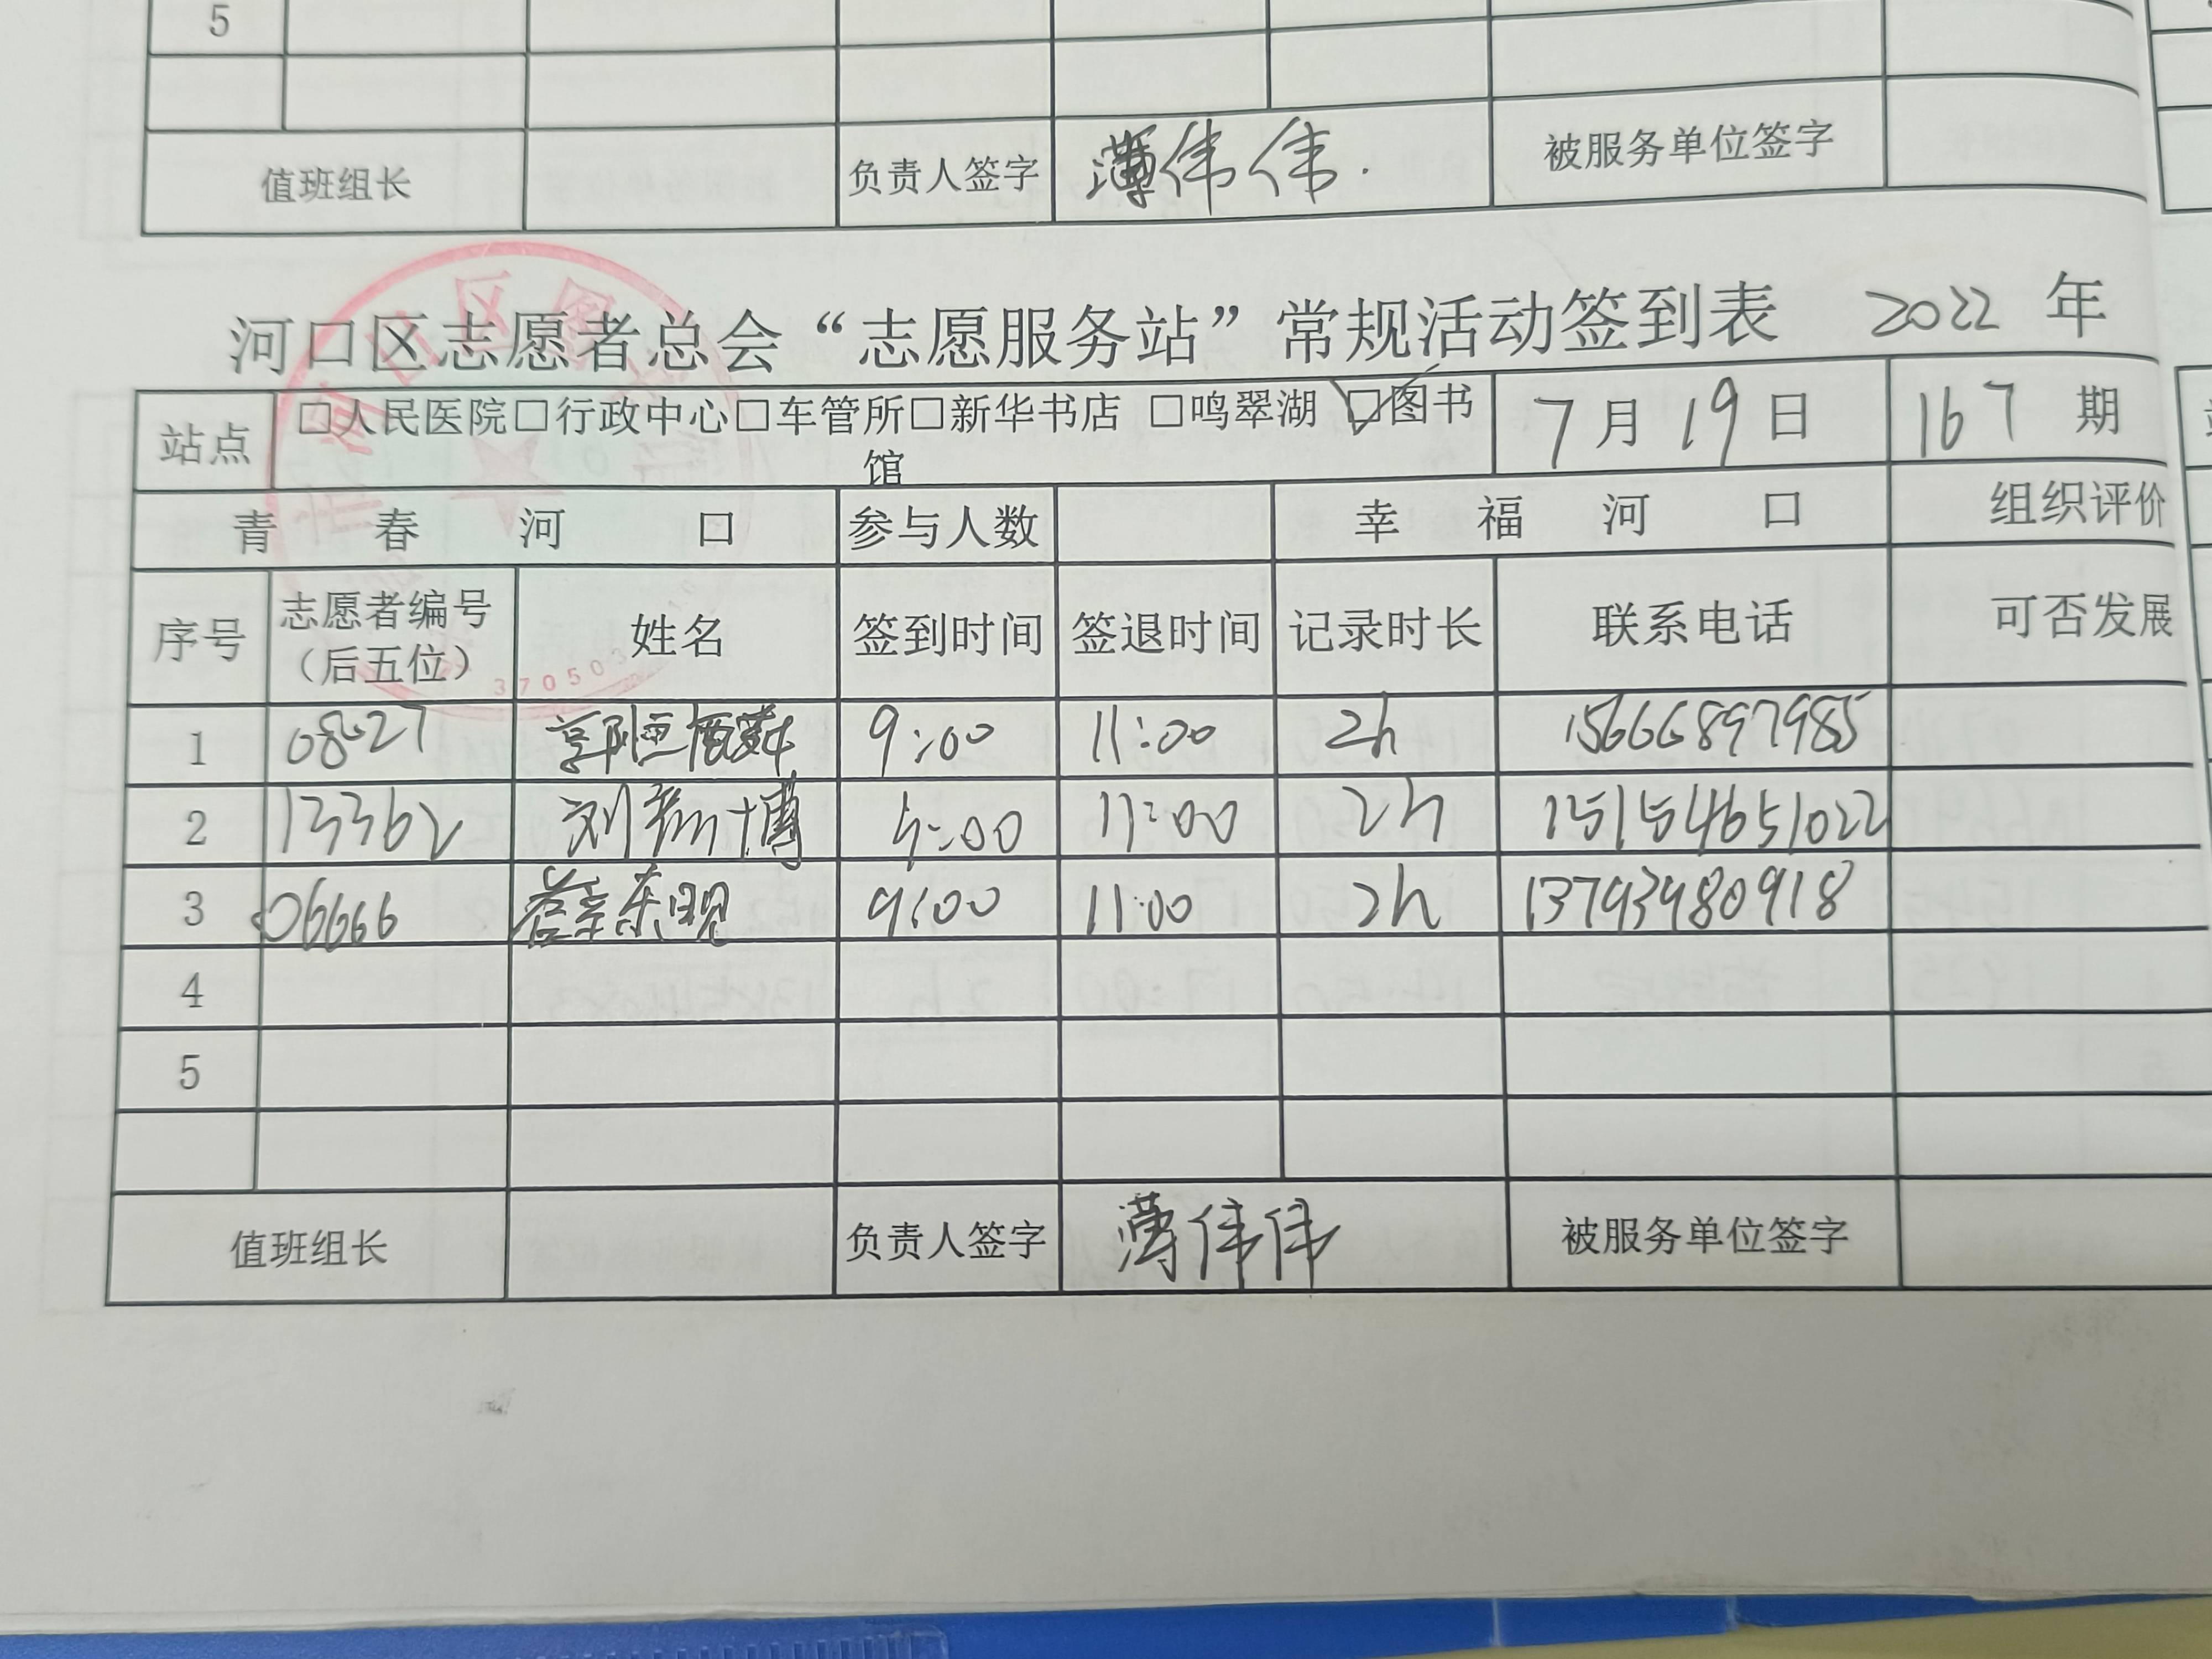 5
值班组长 负责人签字 薄伟伟. 被服务单位签字
河口区志愿者总会“志愿服务站”常规活动签到表 2022 年
站点 □人民医院□行政中心□车管所□新华书店 □鸣翠湖 □图书 7月19日 167 期
馆
青春河口 参与人数 幸福河口 组织评价
序号 志愿者编号 姓名 签到时间 签退时间 记录时长 联系电话 可否发展
（后五位）
370503
1 9:00 11:00 2h 15666897985
2 13362 刘彦博 9:00 11:00 2h 15154651022
3 06666 9:00 11:00 2h 13793980918
4
5
值班组长 负责人签字 薄伟伟 被服务单位签字